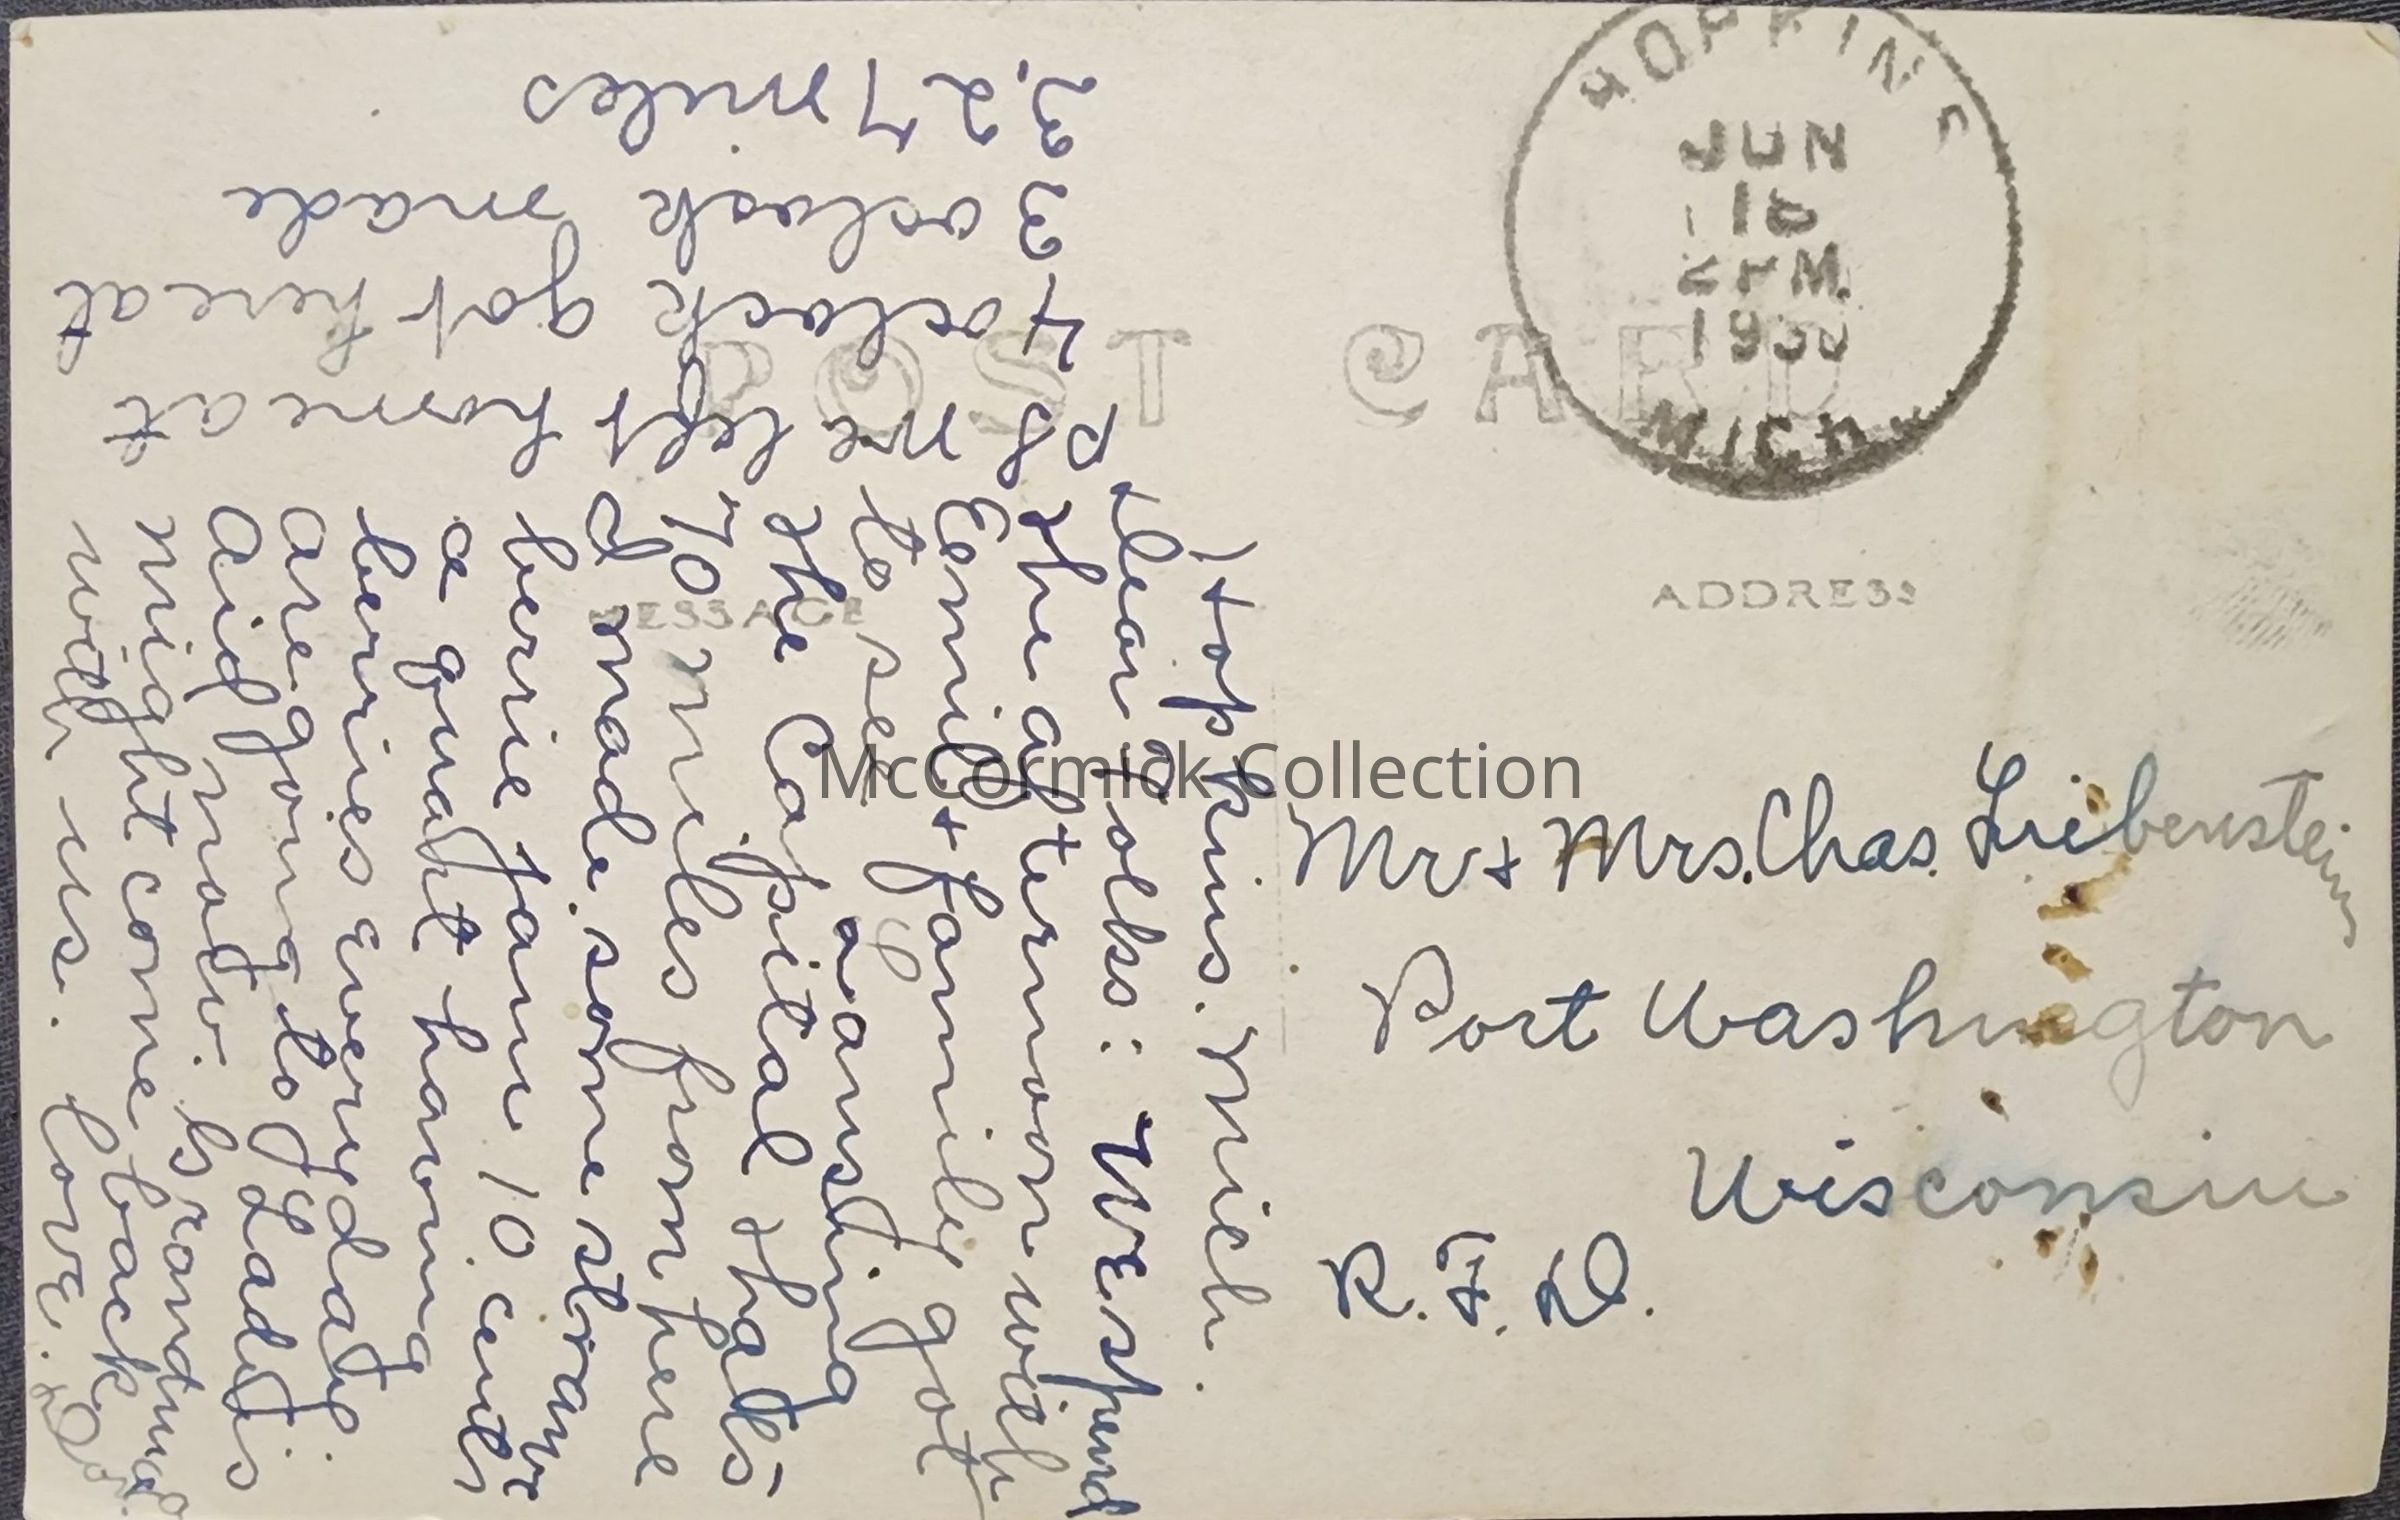 HOPKINS
JUN
16
PM
MICH.
POST CARD
MESSAGE
ADDRESS
Hopkins. Mich.
Dear Folks: We spend
the afternoon with
Emil + family got
to see Lansing
the Capital thats
70 miles from here
I made some straw
berrie jam 10 cents
a quart having
berries everyday.
are going to Ladis
Aid now. Is
might come back
with us. Love.
PS we left home at
4 oclock got here at
3 oclock made
327 miles
Mr + Mrs. Chas. Liebenstein
Port Washington
Wisconsin
R. F. D.
McCormick Collection